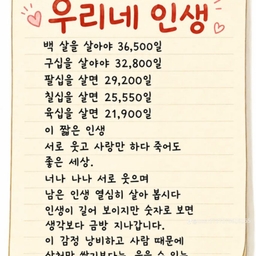 우리네 인생
백 살을 살아야 36,500일
구십을 살아야 32,800일
팔십을 살면 29,200일
칠십을 살면 25,550일
육십을 살면 21,900일
이 짧은 인생
서로 웃고 사랑만 하다 죽어도
좋은 세상.
너나 나나 서로 웃으며
남은 인생 열심히 살아 봅시다
인생이 길어 보이지만 숫자로 보면
생각보다 금방 지나갑니다.
이 감정 낭비하고 사람 때문에